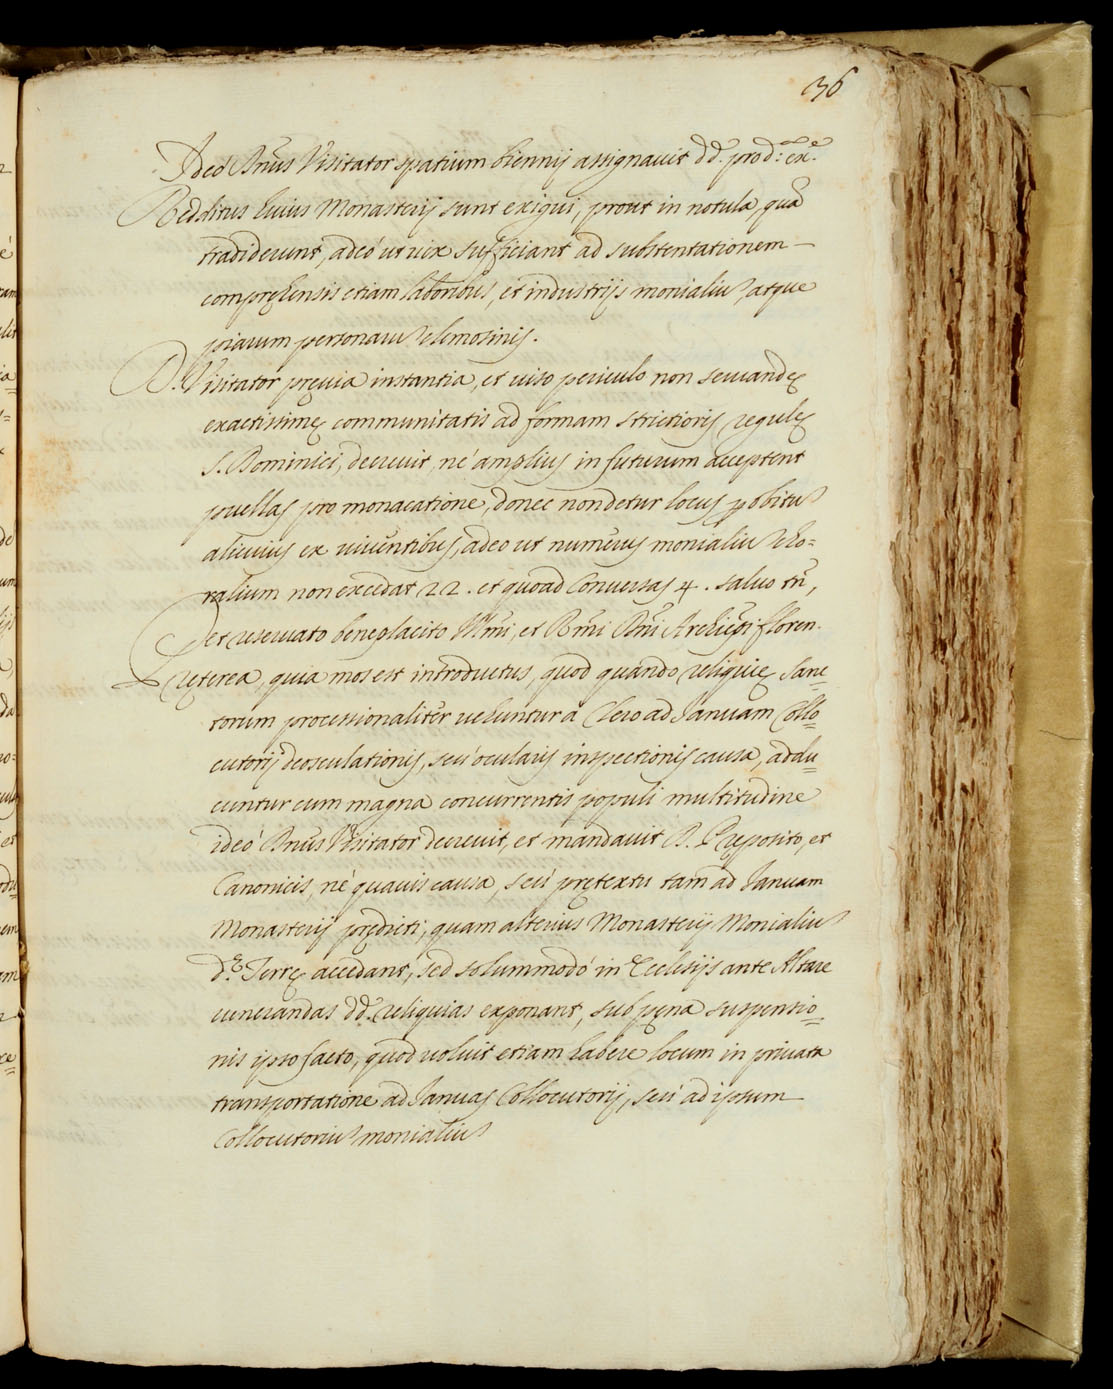 36
Adeo Dnus Visitator spatium biennij assignauit dd. pro d.ª exe.
Redditus huius Monasterij sunt exigui, prout in notula, quā
tradiderunt, adeò ut uix sufficiant ad substentationem —
compręhensis etiam laboribus, et industrijs monialiū, atque
piarum personarū elemosinis.
D. Visitator pręuia instantia, et uiso periculo non seruandę
exactissimę communitatis ad formam strictioris regulę
S. Dominici, decreuit, nè amplius in futurum acceptent
puellas pro monacatione, donec non detur locus p obitū
alicuius ex uiuentibus, adeo ut numerus monialiū cho=
ralium non excedat 22. et quoad Conuersas 4. saluo tñ,
et reseruato beneplacito Illmi, et Rmi Dni Archiepi floren.
Pręterea, quia mos est introductus, quod quando reliquię Sanc=
torum processionaliter uehuntur à Clero ad Ianuam Collo=
cutorij deosculationis, seù ocularis inspectionis causa, addu=
cuntur cum magna concurrentis populi multitudine
ideò Dnus Visitator decreuit, et mandauit D. Pręposito, et
Canonicis, nè quauis causa, seù prętextu tam ad Ianuam
Monasterij prędicti, quam alterius Monasterij Monialiū
d.ę Terrę accedant, sed solummodò in Ecclesijs ante Altare
uenerandas dd. reliquias exponant, sub pęna suspensio=
nis ipso facto, quod uoluit etiam habere locum in priuata
transportatione ad Ianuas Collocutorij, seù ad ipsum
Collocutoriū monialiū